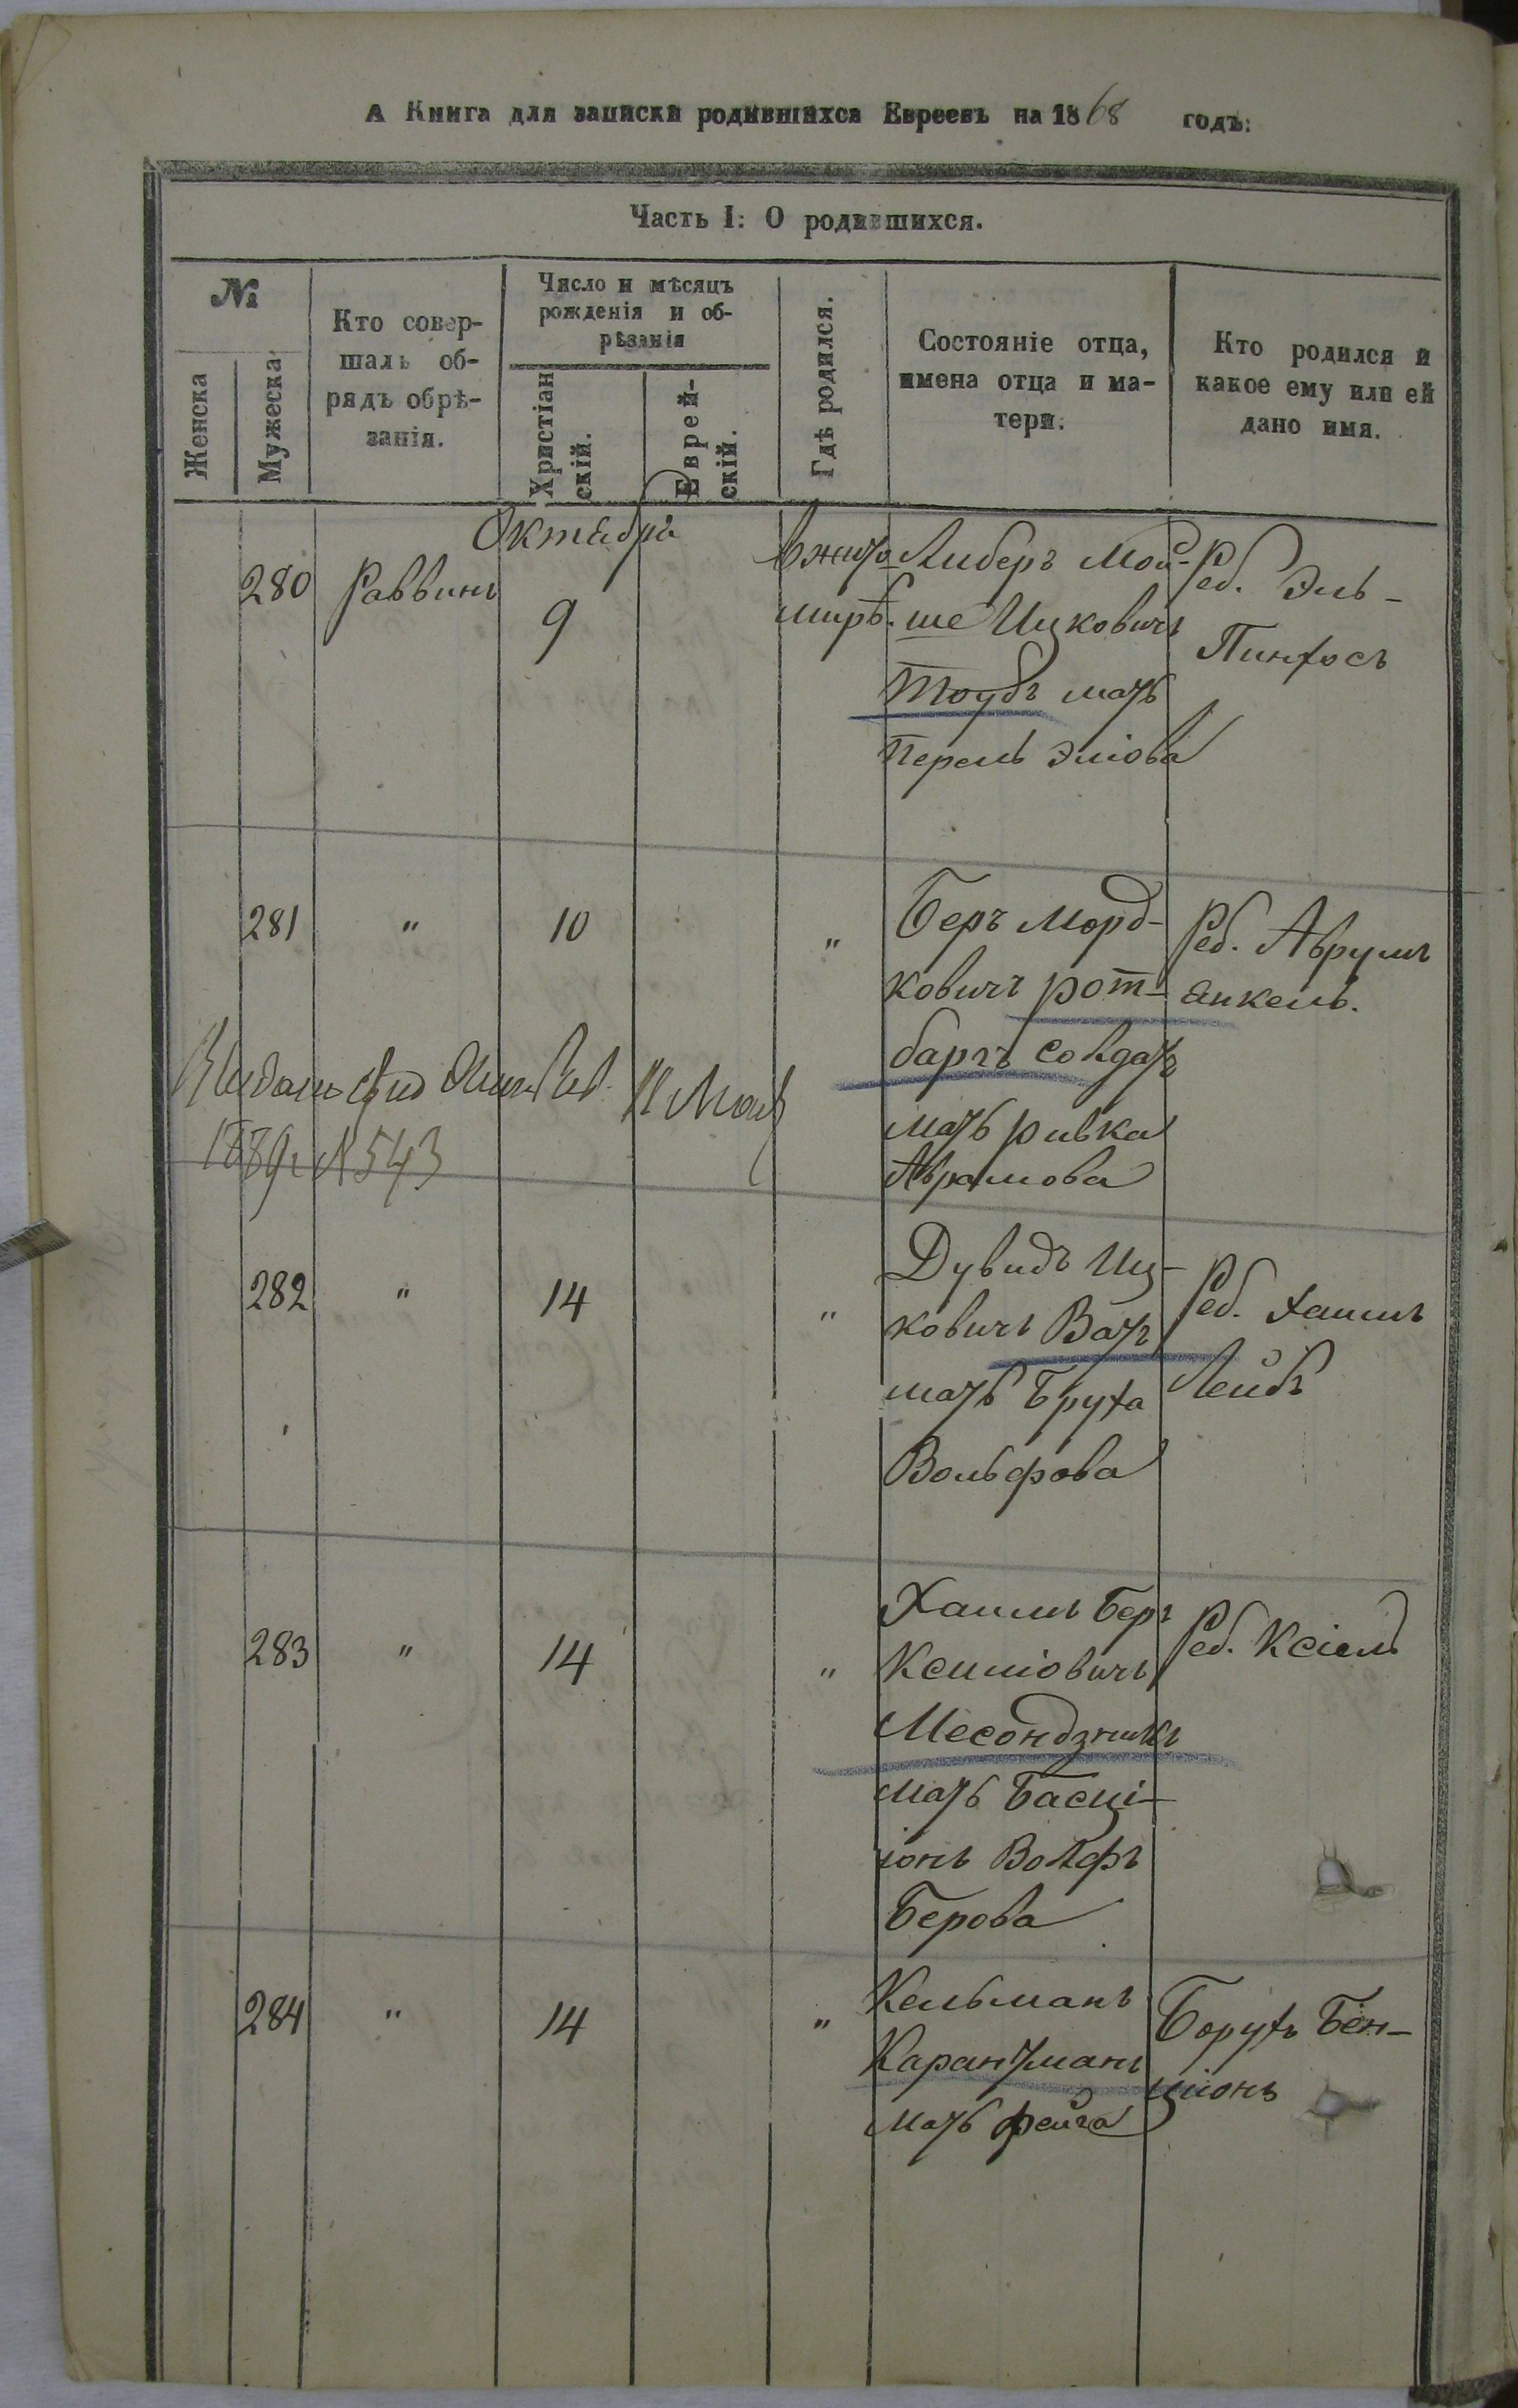 А Книга для записки родившихся Евреевъ на 1868 годъ:
Часть I: О родившихся.
№
Женска
Мужеска
Кто совер-
шалъ об-
рядъ обрѣ-
занія.
Число и мѣсяцъ
рожденія и об-
рѣзанія
Христіан
скій.
Еврей-
скій.
Гдѣ родился.
Состояніе отца,
имена отца и ма-
тери.
Кто родился и
какое ему или ей
дано имя.
Октября
280
Раввинъ
9
в жито
мирѣ.
Либеръ Мой-
ше Ицковичъ
Тоубъ мать
Перель Эліова
Реб. Эль-
Пинхосъ
281
"
10
"
Беръ Морд-
ковичъ рот-
баргъ солдатъ
мать ривка
Аврамова
Реб. Аврумъ
Янкель.
11 Мая
1889г N 543
282
"
14
"
Дувидъ Иц-
ковичъ Ватъ
мать Бруха
Вольфова
Реб. Хаимъ
Лейбъ
283
"
14
"
Хаимъ Беръ
Ксиліовичъ
Месондзникъ
мать Басці-
іонъ Волфъ
Берова
Реб. Ксіель
284
"
14
"
Кельманъ
Карантманъ
мать фейга
Борухъ Бен-
ціонъ